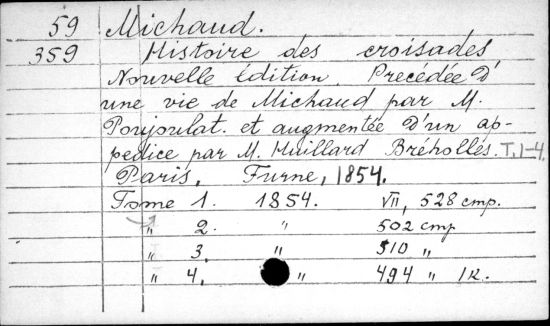 59 Michaud.
359 Histoire des croisades
Nouvelle édition. Precédée d'
une vie de Michaud par M.
Poujoulat. et augmentée d'un ap-
pedice par M. Huillard Bréholles. T. 1-4.
Paris, Furne, 1854.
Tome 1. 1854. VII, 528 стр.
„ 2. „ 502 стр
„ 3, „ 510 „
„ 4, „ 494 „ 1 к.